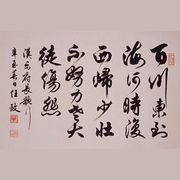 百川東到
海何時復
西歸少壯
不努力老大
徒傷悲
漢樂府長歌行
日任政